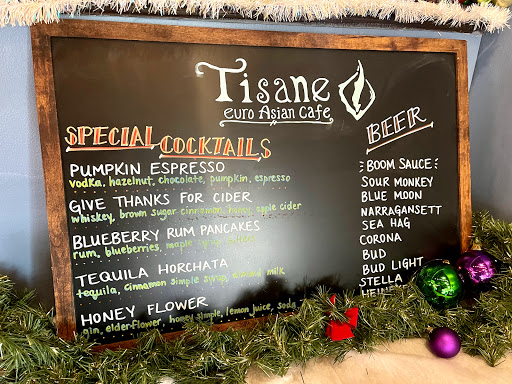 Tisane
euro Asian Cafe
SPECIAL COCKTAILS
PUMPKIN ESPRESSO
vodka, hazelnut, chocolate, pumpkin, espresso
GIVE THANKS FOR CIDER
whiskey, brown sugar cinnamon, honey, apple cider
BLUEBERRY RUM PANCAKES
rum, blueberries, maple
TEQUILA HORCHATA
tequila, cinnamon simple syrup, almond milk
HONEY FLOWER
gin, elderflower, honey simple, lemon juice, soda
BEER
BOOM SAUCE
SOUR MONKEY
BLUE MOON
NARRAGANSETT
SEA HAG
CORONA
BUD
BUD LIGHT
STELLA